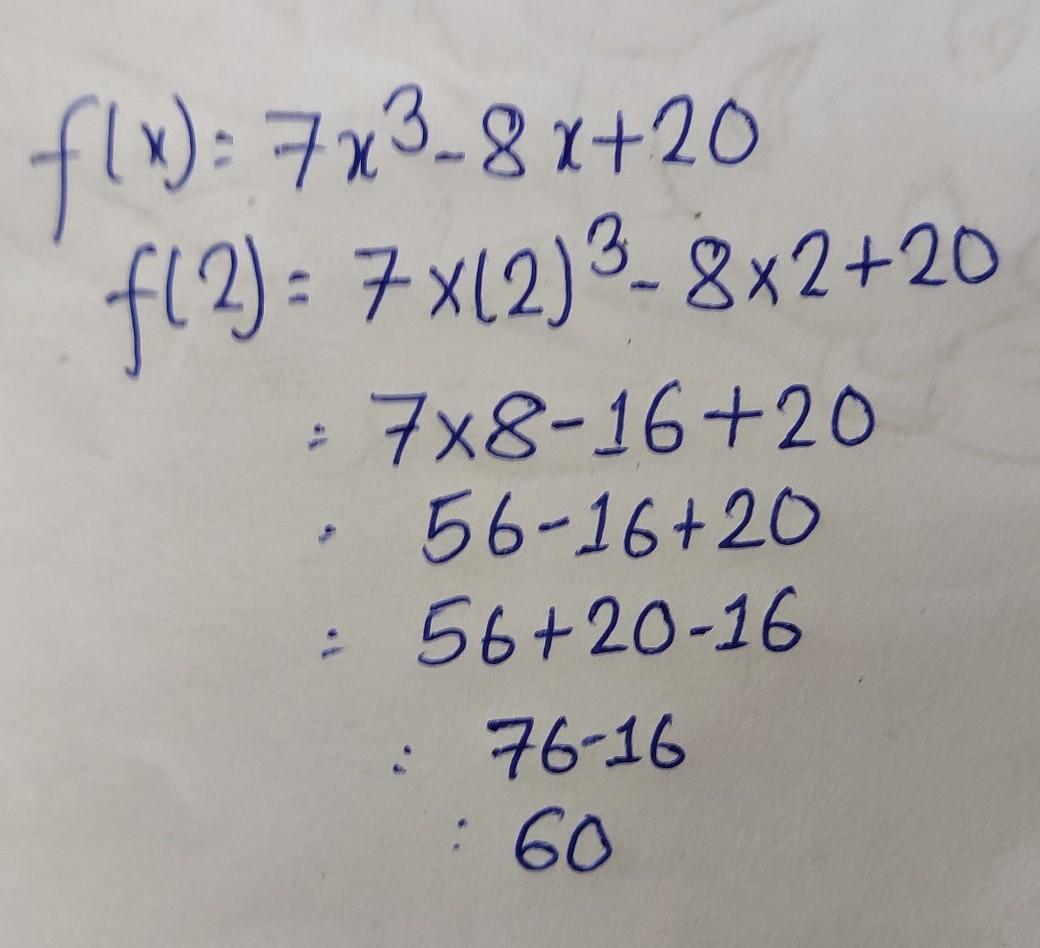 f(x) = 7x³ - 8x + 20
f(2) = 7×(2)³ - 8×2+20
= 7×8-16+20
= 56-16+20
= 56+20-16
= 76-16
= 60